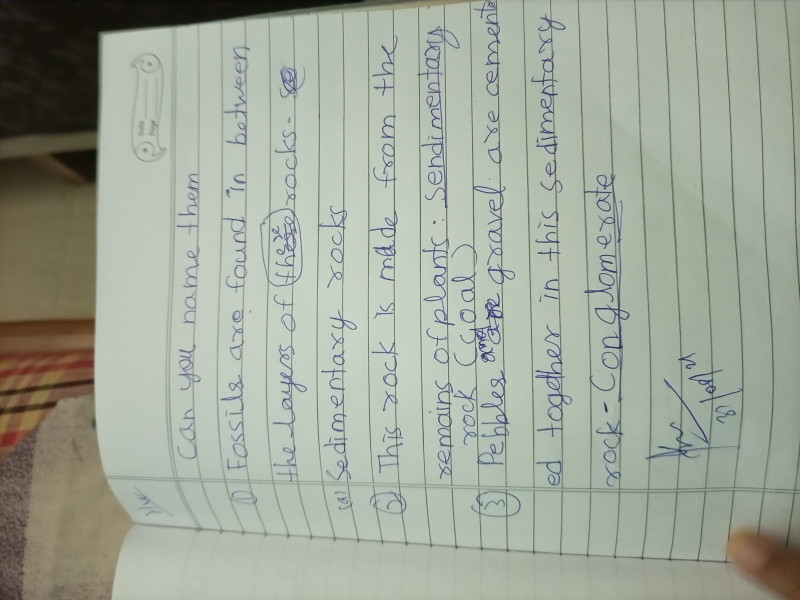 Can you name them
1) Fossils are found in between
the layers of these rocks-
(a) Sedimentary rocks
2) This rock is made from the
remains of plants. Sendimentary
rock (Coal)
3) Pebbles and gravel are cement
ed together in this sedimentary
rock - Conglomerate